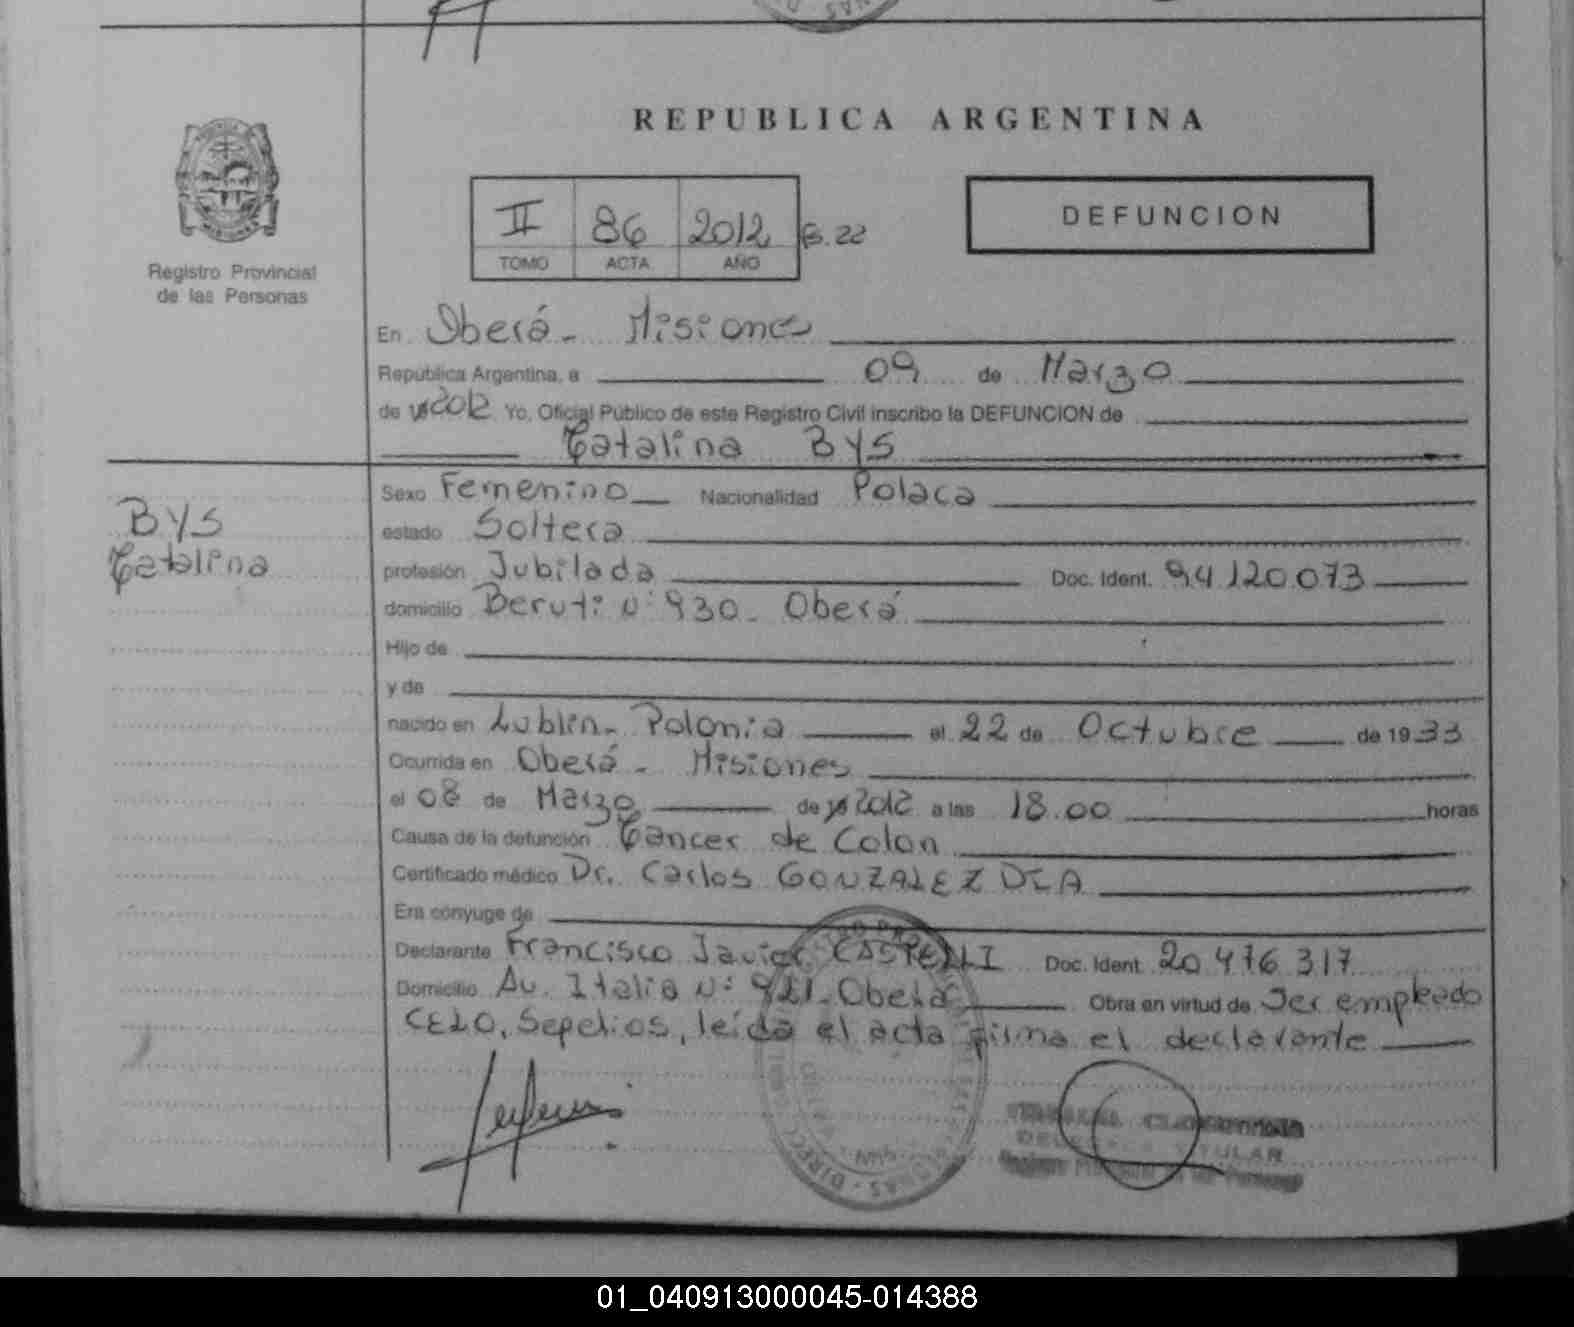 REPUBLICA ARGENTINA
Registro Provincial
de las Personas
II 86 2012 B. 22
TOMO ACTA AÑO
DEFUNCION
En Oberá - Misiones
República Argentina, a 09 de Marzo
de 2012 Yo, Oficial Público de este Registro Civil inscribo la DEFUNCION de
Catalina BYS
BYS
Catalina
Sexo Femenino Nacionalidad Polaca
estado Soltera
profesión Jubilada Doc. Ident. 94.120.073
domicilio Beruti N° 930 - Oberá
Hijo de
y de
nacido en Lublin - Polonia el 22 de Octubre de 1933
Ocurrida en Oberá - Misiones
el 08 de Marzo de 2012 a las 18.00 horas
Causa de la defunción Cancer de Colon
Certificado médico Dr. Carlos GONZALEZ DEA
Era cónyuge de
Declarante Francisco Javier CASTELLI Doc. Ident. 20.476.317
Domicilio Av. Italia N° 921 - Oberá Obra en virtud de Ser empleado
CELO, Sepelios, leída el acta firma el declarante
TITULAR
01_040913000045-014388